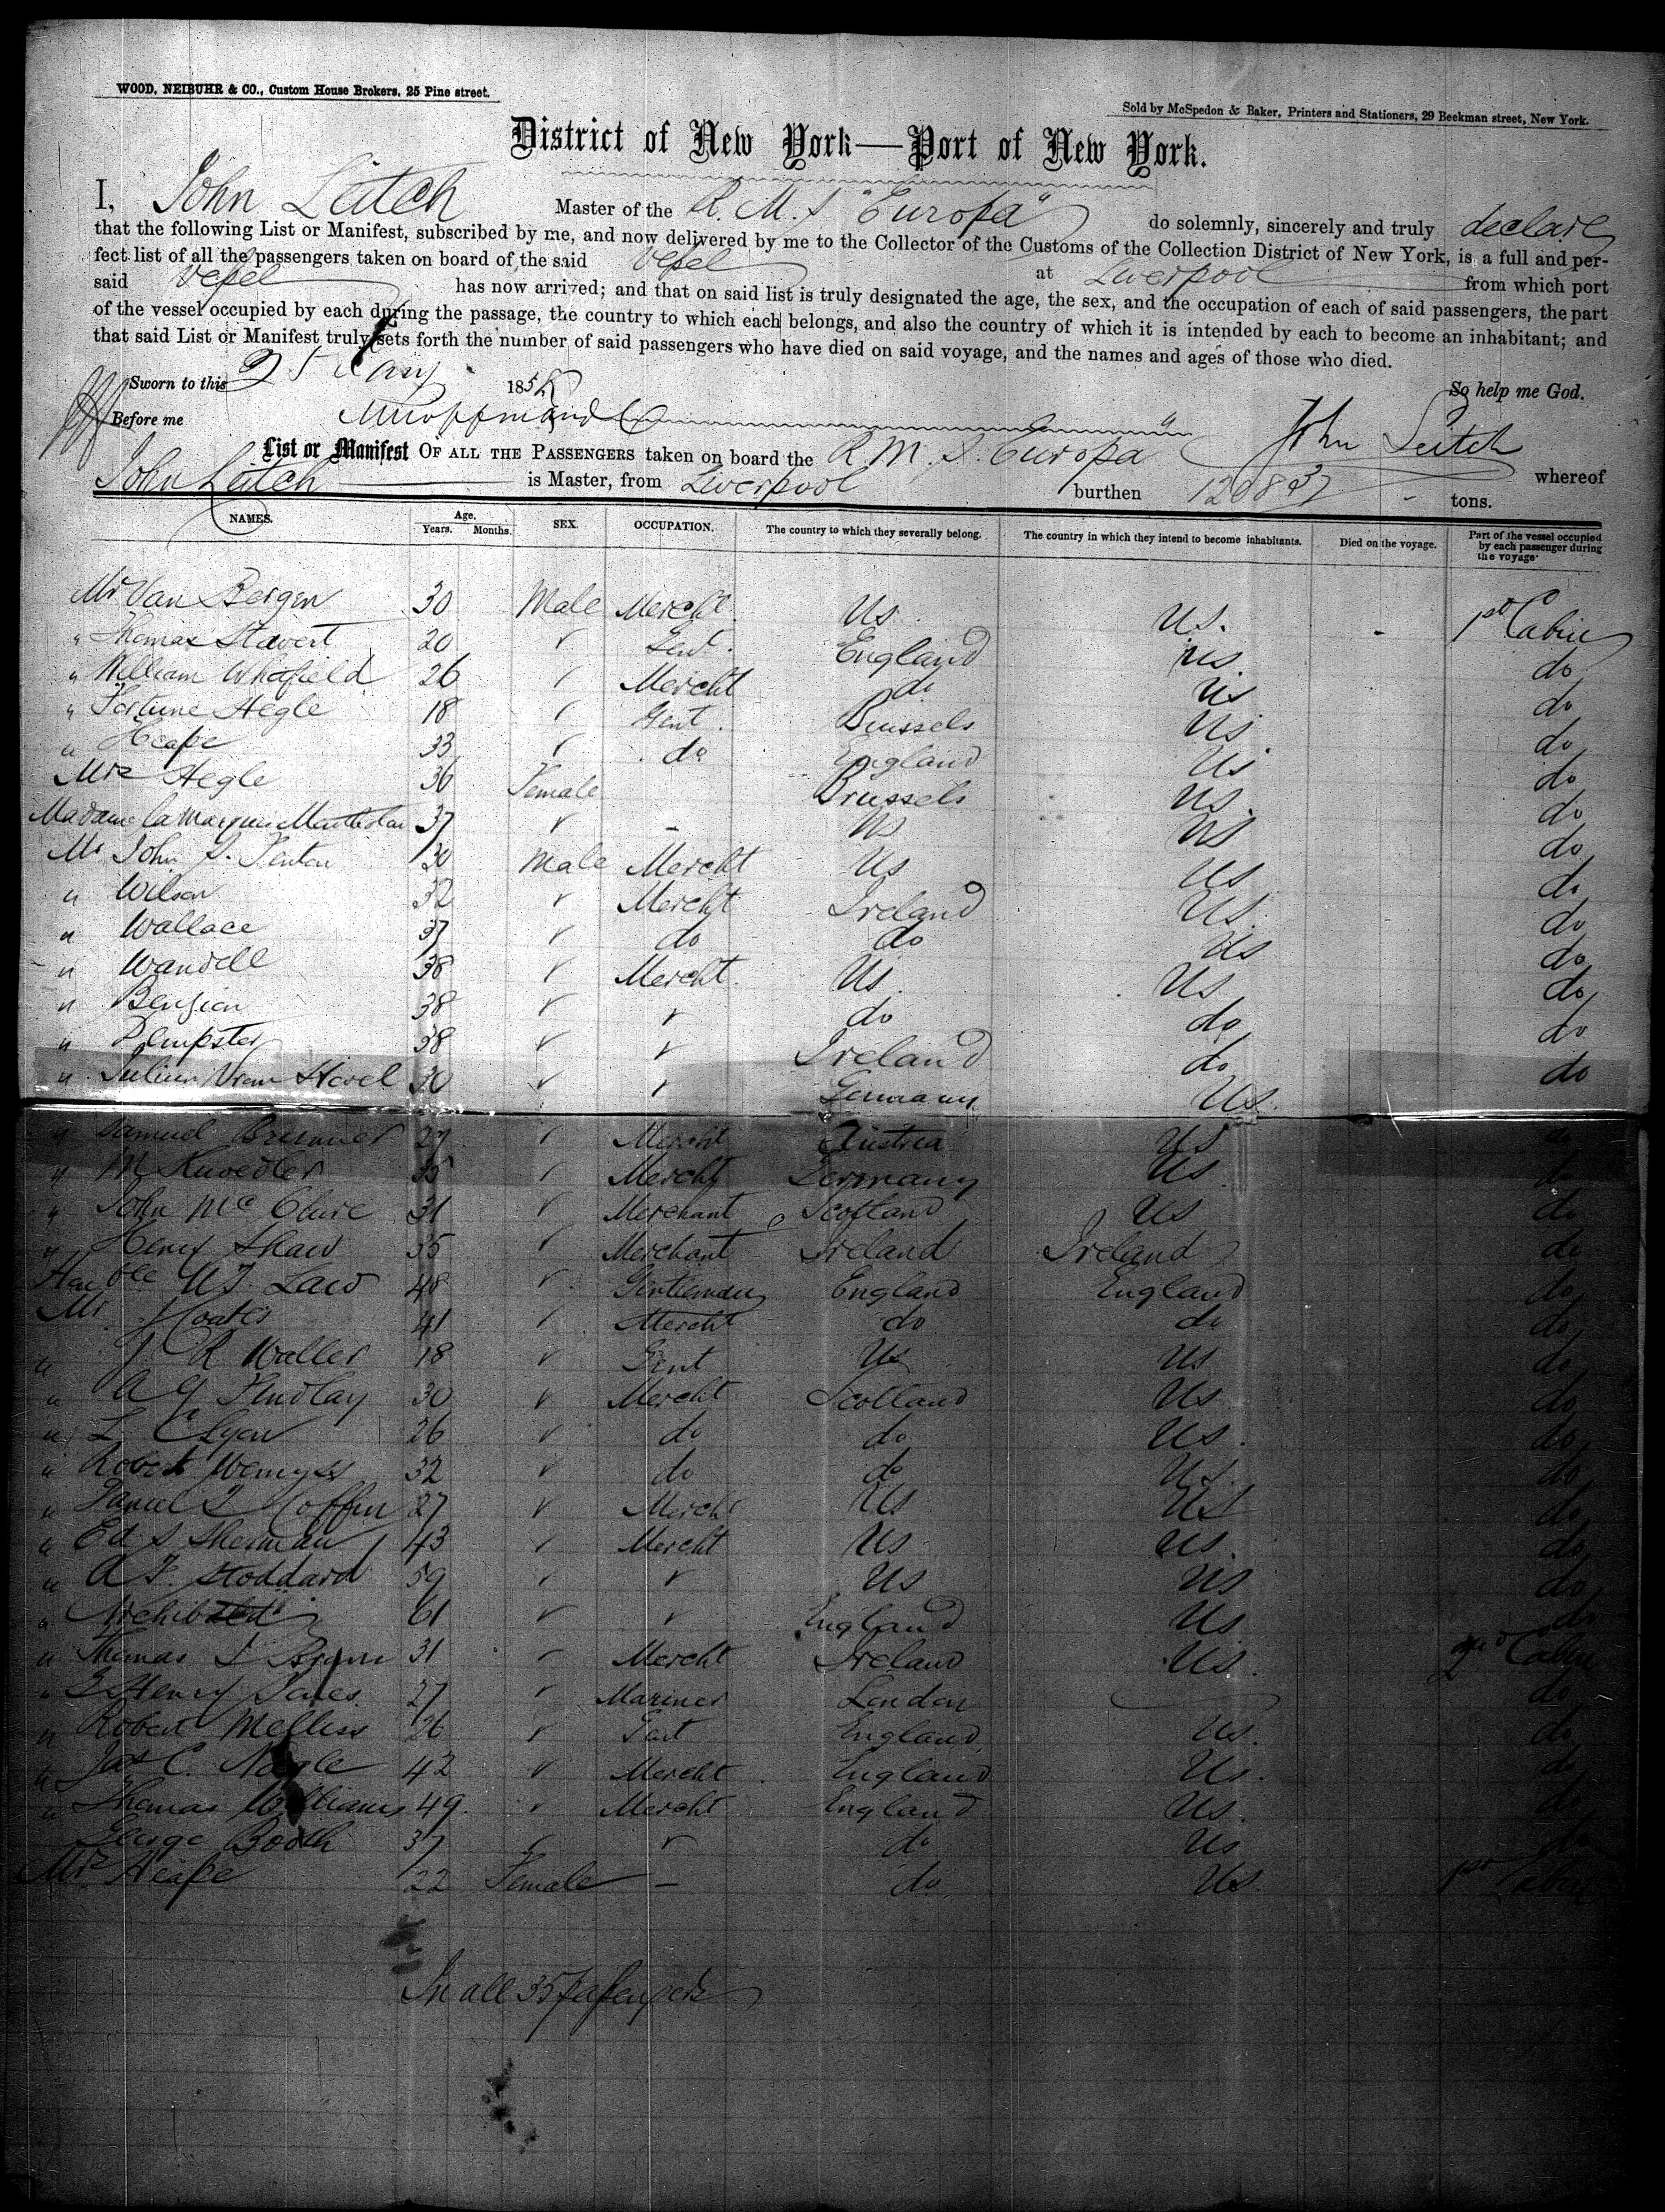 WOOD, NEIBUHR & CO., Custom House Brokers, 25 Pine street.
Sold by McSpedon & Baker, Printers and Stationers, 29 Beekman street, New York.
District of New York—Port of New York.
I, John Leitch Master of the R. M. S "Europa" do solemnly, sincerely and truly declare
that the following List or Manifest, subscribed by me, and now delivered by me to the Collector of the Customs of the Collection District of New York, is a full and per-
fect list of all the passengers taken on board of the said Vessel at Liverpool from which port
said Vessel has now arrived; and that on said list is truly designated the age, the sex, and the occupation of each of said passengers, the part
of the vessel occupied by each during the passage, the country to which each belongs, and also the country of which it is intended by each to become an inhabitant; and
that said List or Manifest truly sets forth the number of said passengers who have died on said voyage, and the names and ages of those who died.
Sworn to this 185 So help me God.
Before me John Leitch
List or Manifest OF ALL THE PASSENGERS taken on board the R. M. S. Europa" whereof
John Leitch is Master, from Liverpool burthen tons.
NAMES. Age. Years. Months. SEX. OCCUPATION. The country to which they severally belong. The country in which they intend to become inhabitants. Died on the voyage. Part of the vessel occupied by each passenger during the voyage.
Mr Van Bergen 30 Male Mercht. US. US. - 1st Cabin
" Thomas Stavert 20 " Gent. England US do
" William Whitfield 26 " Mercht do US do
" Fortune Hegle 18 " Gent. Brussels US do
" Heape 33 " do England US do
Mrs Hegle 36 Female Brussels US. do
Madame 37 " - US US do
Mr John S. Fenton 30 Male Mercht US US do
" Wilson 32 " Mercht Ireland US. do
" Wallace 37 " do do US do
" Wandell 38 " Mercht. US. US do
" Benzion 38 " " do do do
" Dempster 38 " " Ireland do do
" Julius 30 " " Germany US. do
" Samuel 27 " Mercht Austria US do
" M Knoedler 35 " Mercht Germany US. do
" John McClure 31 " Merchant Scotland US do
" Henry Shaw 35 " Merchant Ireland Ireland do
Honble Law 48 " Gentleman England England do
Mr 41 " Mercht do do do
" J R Waller 18 " Gent US US do
" A G Findlay 30 " Mercht Scotland US do
" L Clyon 26 " do do US. do
" Robert Wemyss 32 " do do US. do
" Daniel T Coffin 27 " Mercht US US do
" Ed. S Sherman 43 " Mercht US US. do
" A F. Stoddard 59 " " US US do
" Archibald 61 " " England US do
" Thomas 31 " Mercht Ireland US. 2nd Cabin
" Henry Jones. 27 " Mariner London do
" Robert Melliss 26 " Gent England US. do
" Jas C. Nagle 42 " Mercht. England US. do
" Thomas Williams 49. " Mercht England US. do
George Booth 37 " " do US do
Mrs Heape 22 Female - do US. 1st Cabin
In all 35 passengers